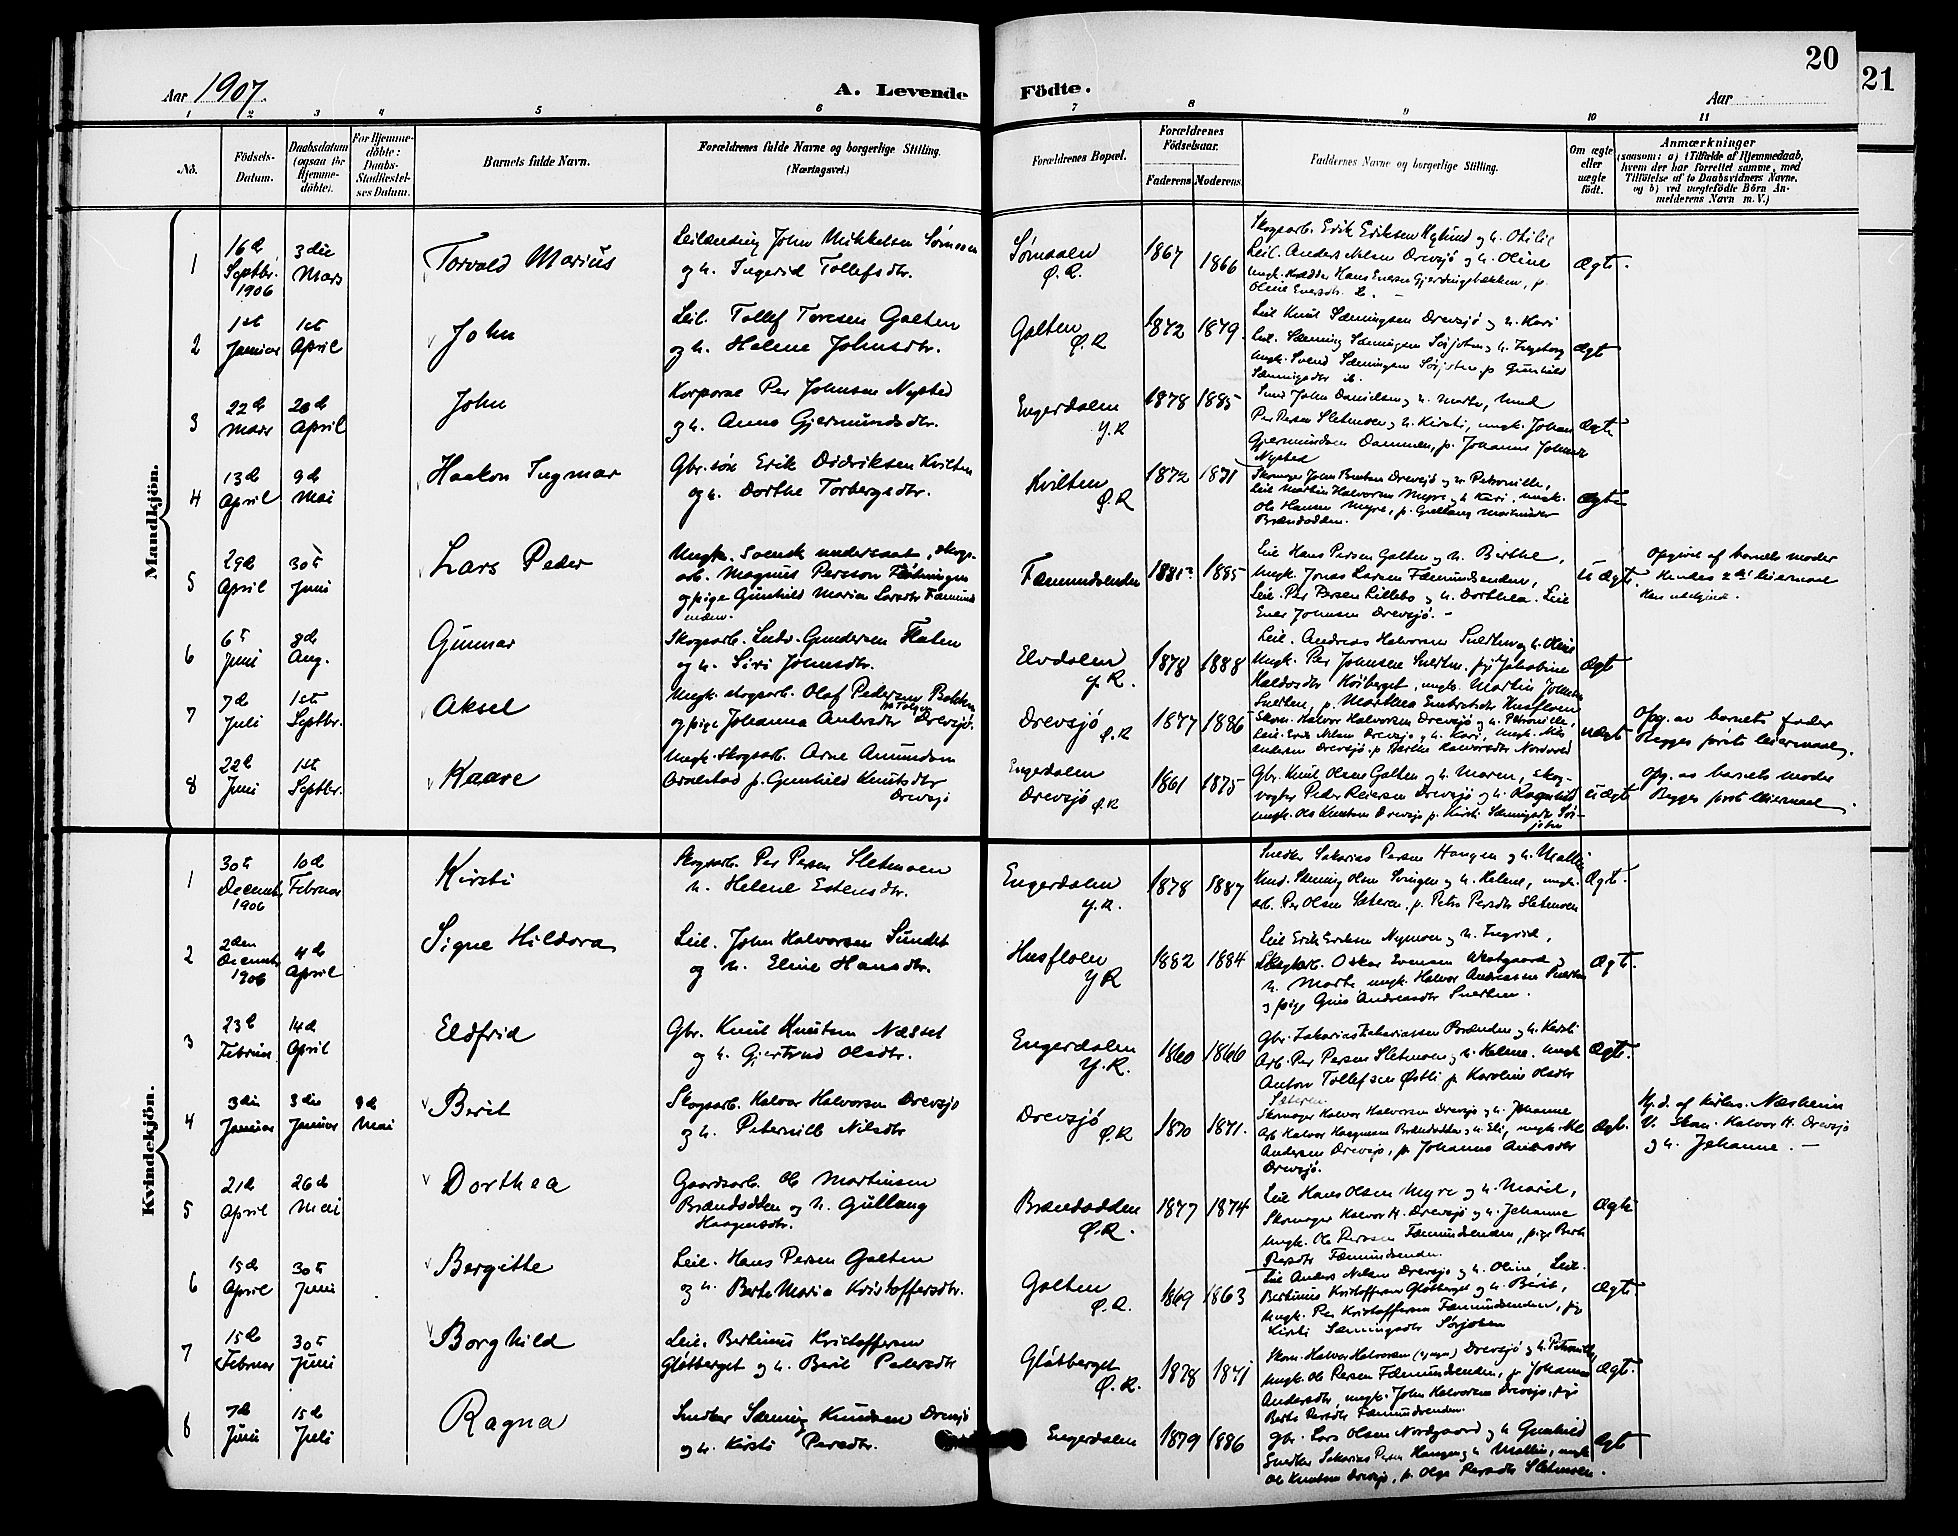 20
21
Aar 1907.
A. Levende Födte.
Aar
1 2 3 4 5 6 7 8 9 10 11
No.
Födsels-Datum.
Daabsdatum (ogsaa for Hjemme-döbte).
For Hjemme-döbte: Daabs-Stadfæstel-ses Datum.
Barnets fulde Navn.
Forældrenes fulde Navne og borgerlige Stilling. (Næringsvei.)
Forældrenes Bopæl.
Forældrenes Födselsaar.
Faderens Moderens.
Faddernes Navne og borgerlige Stilling.
Om ægte eller uægte födt.
Anmærkninger
(saasom: a) i Tilfælde af Hjemmedaab, hvem der har forrettet samme, med Tilföielse af to Daabsvidners Navne, og b) ved uægtefödte Börn Anmelderens Navn m. V.)
Mandkjön.
1 16d Septbr. 1906 3die Mars Torvald Marius
Leilænding John Mikkelsen Sømaaen
og h. Ingerid Tollefsdtr.
Sømaaen Ø. R. 1867 1866 Ægte.
Skogsarb. Erik Eriksen Nylund og h. Otilie
Leil. Anders Nilsen Drevsjø og h. Oline
2 1ste Januar 1ste April John
Leil. Tollef Toresen Galten
og h. Helene Johnsdtr.
Galten Ø. R 1872 1879. Ægte
Leil Knut Sæmingsen Drevsjø og h. Kari
Leil. Sæming Sæmingsen Sørjoten og h. Ingeborg
Ungk. Svend Sæmingsen Sørjoten, p Gunhild
Sæmingsdtr ib.
3 22d Mars 28d April John
Korporal Per Johnsen Nysted
og h. Anne Gjermundsdtr.
Engerdalen Y. R 1878 1885 Ægte
Smed John Danielsen og h. Marte, Smed
Per Persen Sletmoen og h. Kirsti, ungk. Johan
Gjermundsen Dammen, p. Johanne Johnsd
Nysted
4 13d April 9d Mai Haakon Ingmar
Gbr. søn Erik Didriksen Kvilten
og h. Dorthe Torbergsdtr.
Kvilten Ø. R 1872 1871 Ægte
Skomager John Bentsen Drevsjø og h. Petronille,
Leil Martin Halvorsen Myre og h Kari, ungk.
Ole Hansen Myre, p. Gullaug Martinsdtr
Brændodden.
5 29d April 30te Juni Lars Peder
Ungk. Svensk undersaat, skogs-
arb. Magnus Persson
og pige Gunhild Maria Larsdtr Fæmund
enden.
Fæmundsenden 1881 1885 Uægte
Leil Hans Persen Galten og h. Birthe,
Ungk. Jonas Larsen Fæmundsenden,
Leil. Per Persen Lillebo og h. Dorthea. Leil
Ener Johnsen Drevsjø. –
Opgivet af barnets moder
Hendes 2det leiermaal
6 6te Juni 8d Aug. Gunnar
Skogsarb. Ludv. Gundersen Floten
og h. Siri Johnsdtr.
Elvdalen Y. R. 1878 1888 Ægte
Leil. Andreas Halvorsen Snerten og h. Oline
Ungk. Per Johnsen Snerten, pige Jakobine
Haldosdtr Høiberget, ungk. Martin Johnsen
Snerten, p. Marthea Embretsdtr Husfloen
7 7d Juli 1ste Septbr. Aksel
Ungk. skogsarb. Olaf Pedersen Bakken
fra Tolgen
og pige Johanna Andersdtr Drevsjø.
Drevsjø Ø. R 1877 1886 Uægte
Skom. Halvor Halvorsen Drevsjø og h. Petronille,
Leil. Erik Nilsen Drevsjø og h. Kari, Ungk. Nils
Andersen Drevsjø, p. Marthe Halvorsdtr Nordvold
Opg. av barnets fader
Begges første leiermaal.
8 22de Juni 1ste Septbr. Kaare
Ungk. Skogsarb. Arne Amundsen
p. Gunhild Knutsdtr
Drevsjø
Engerdalen
Drevsjø Ø. R 1861 1875 Uægte
Gbr. Knut Olsen Galten og h. Maren, skog-
vogter Peder Reiersen Drevsjø og h. Ragnhild
ungk. Ole Knutsen Drevsjø p. Kirsti Sæmingsdtr Sør-
joten
Opg. av barnets moder
Begges første leiermaal.
Kvindekjön.
1 30te Decembr. 1906 10d Februar Kirsti
Skogsarb. Per Persen Sletmoen
h. Helene Estensdtr.
Engerdalen Y. R. 1878 1887 Ægte.
Snedker Sakarias Persen Haugen og h. Malli
Smed. Sæming Olsen Svingen og h. Helene, ungk.
arb. Per Olsen Sæteren, p. Petra Persdtr Sletmoen
2 2den Decembr 1906 4d April Signe Hildora
Leil. John Halvorsen Sundet
og h. Eline Hansdtr.
Husfloen Y. R 1882 1884 Ægte.
Leil Erik Eriksen Nymoen og h. Ingrid,
Skogsarb. Oskar Evensen Westgaard og
h. Marte ungk. Halvor Andreassen Snerten
og pige Guni Andreasdtr Snerten.
3 23d Februar 14d April Eldfrid
Gbr. Knut Knutsen Næsset
og h. Gjertrud Olsdtr.
Engerdalen Y. R. 1860 1866 Ægte.
Gbr. Zakarias Zakariassen Brænden og h. Kersti
Arb. Per Persen Sletmoen og h. Helene. Ungk
Anton Tollefsen Østli p Karoline Olsdtr
Sæteren
4 3die Januar 3die Januar 9d Mai Berit
Skogsarb. Halvor Halvorsen Drevsjø
og h. Peternille Nilsdtr
Drevsjø Ø. R 1870 1871. Ægte.
Skomager Halvor Halvorsen Drevsjø og h. Johanne
Arb Halvor Haagensen Brændodden og h. Eli, ungk. Nils
Andersen Drevsjø, p Johanne Andersdtr
Drevsjø.
Hj.d. af kirkes. Næsheim
V. Skom. Halvor H. Drevsjø
og h. Johanne. –
5 21d April 26d Mai Dorthea
Gaardsarb. Ole Martinsen
Brændodden og h. Gullaug
Haagensdtr.
Brændodden Ø. R. 1877 1874 Ægte
Leil Hans Olsen Myre og h. Marit,
Skomager Halvor H. Drevsjø og h. Johanne
Ungk. Ole Persen Fæmundsenden, pige Berte
Persdtr Fæmundsenden.
6 15d April 30te Juni Bergitte
Leil. Hans Persen Galten
og h. Berte Maria Kristoffersdtr.
Galten Ø. R. 1869 1863 Ægte
Leil Anders Nilsen Drevsjø og h. Oline, Leil.
Bertinus Kristoffersen Gløtberget og h. Berit,
Ungk. Per Kristoffersen Fæmundsenden, pige
Kirsti Sæmingsdtr Sørjoten
7 15de Februar 30te Juni Borghild
Leil. Bertinus Kristoffersen
Gløtberget og h. Berit Pedersdtr
Gløtberget Ø. R. 1878 1871 Ægte.
Skom. Halvor Halvorsen (yngre) Drevsjø og h. Petronille,
Ungk. Ole Persen Fæmundsenden, p Johanne
Andersdtr, ungk. John Halvorsen Drevsjø, pige
Berte Persdtr Fæmundsenden.
8 7de Juni 15d Juli Ragna
Snedker Sæming Knudsen Drevsjø
og h. Kirsti Persdtr.
Engerdalen 1879 1886 Ægte
Gbr. Lars Olsen Nordgaard og h Gunhild
Snedker Sakarias Persen Haugen og h. Mallin, ungk
Ole Knutsen Drevsjø, p. Olga Persdtr Sletmoen.